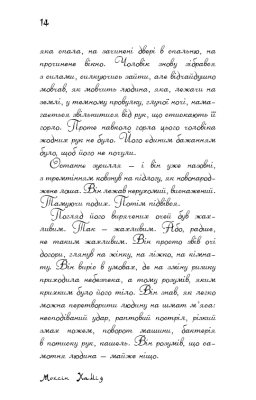 14
яка спала, на зачинені двері в спальню, на
прочинене вікно. Чоловік знову зібрався
з силами, силкуючись зайти, але відчайдушно
мовчав, як мовчить людина, яка, лежачи на
землі, у темному провулку, глупої ночі, нама-
гається звільнитися від рук, що стискають її
горло. Проте навколо горла цього чоловіка
жодних рук не було. Його єдиним бажанням
було, щоб його не почули.
Останнє зусилля — і він уже назовні,
з тремтінням ковтув на підлогу, як новонарод-
жене лоша. Він лежав нерухомий, виснажений.
Тамуючи подих. Потім підвівся.
Погляд його вирячених очей був жах-
ливим. Так — жахливим. Або, радше,
не таким жахливим. Він просто звів очі
догори, глянув на жінку, на ліжко, на кімна-
ту. Він виріс в умовах, де на зміну ризику
приходила небезпека, а тому розумів, яким
крихким було його тіло. Він знав, як легко
можна перетворити людину на шмат м'яса:
несподіваний удар, раптовий постріл, різкий
змах ножем, поворот машини, бактерія
в потиску рук, кашель. Він розумів, що са-
мотня людина — майже ніщо.
Мохсін Хамід